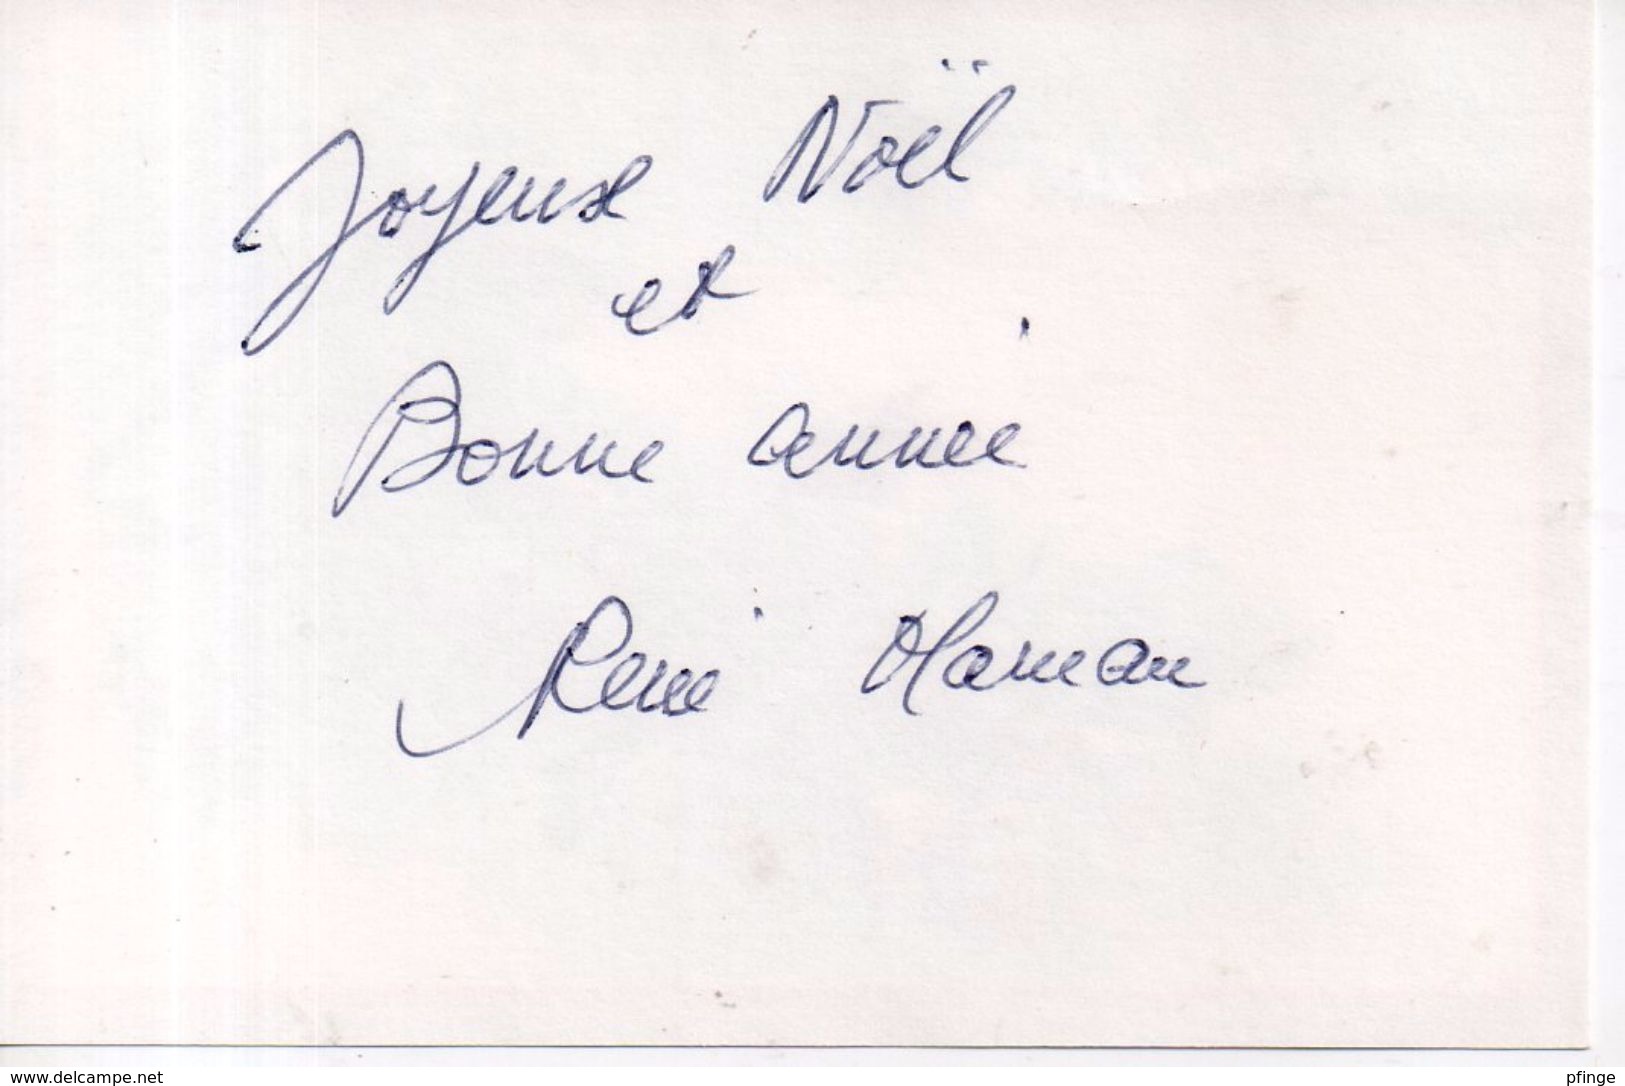 Joyeuse Noël
et
Bonne année
René Haman
www.delcampe.net
pfinge